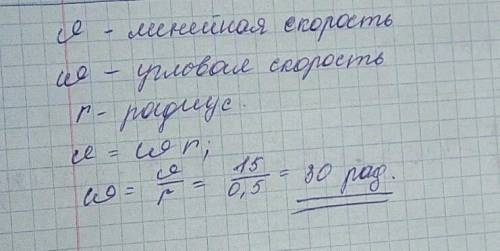 υ - линейная скорость
ω - угловая скорость
r - радиус.
υ = ω r;
ω = υ/r = 15/0,5 = 30 рад.